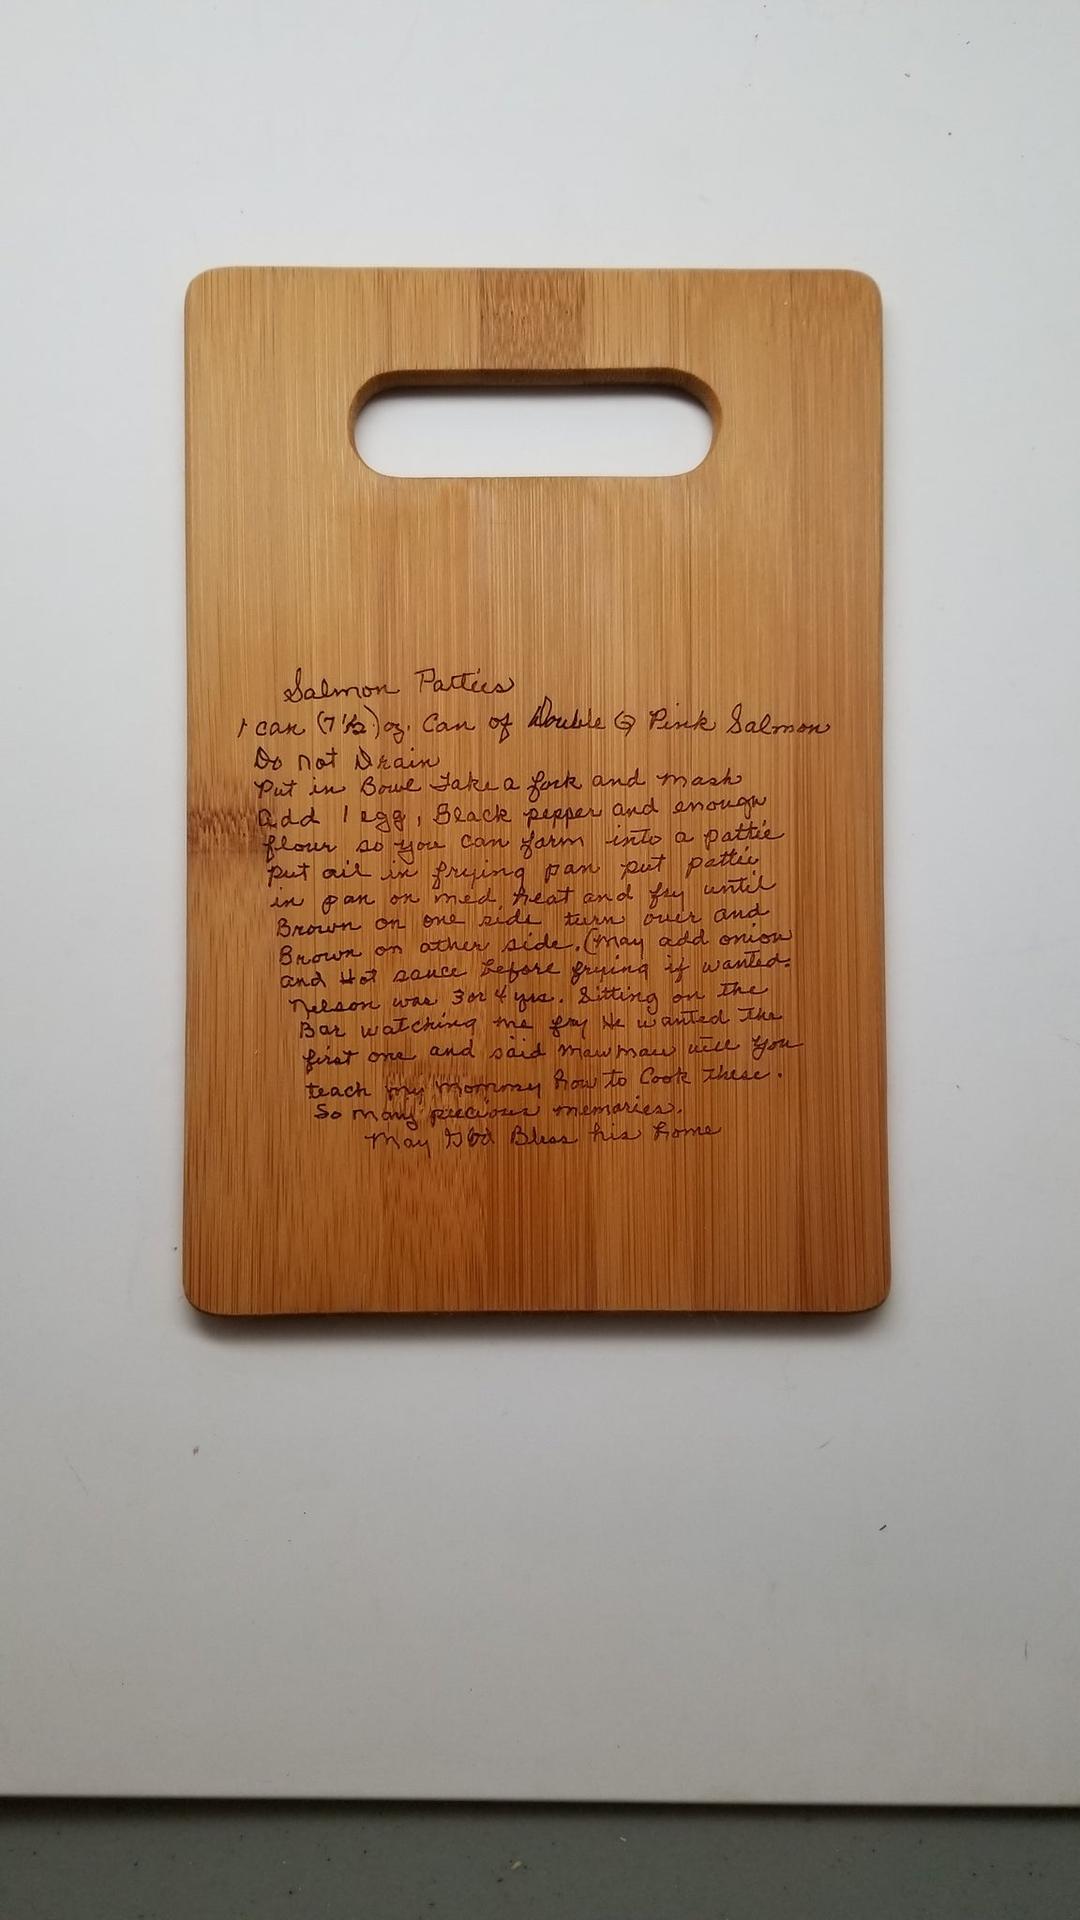 Salmon Patties
1 can (7 1/2) oz. Can of Double Q Pink Salmon
Do not Drain
Put in Bowl Take a fork and mash
add 1 egg, Black pepper and enough
flour so you can form into a pattie
Put oil in frying pan put pattie
in pan on med. heat and fry until
Brown on one side turn over and
Brown on other side. (May add onion
and Hot sauce before frying if wanted.
Nelson was 3 or 4 yrs. Sitting on the
Bar watching me fry He wanted the
first one and said mawmaw will you
teach my Mommy how to Cook these.
So many precious memories.
May God Bless his home